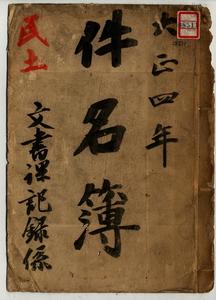 大正四年
件名簿
民土
文書課記録係